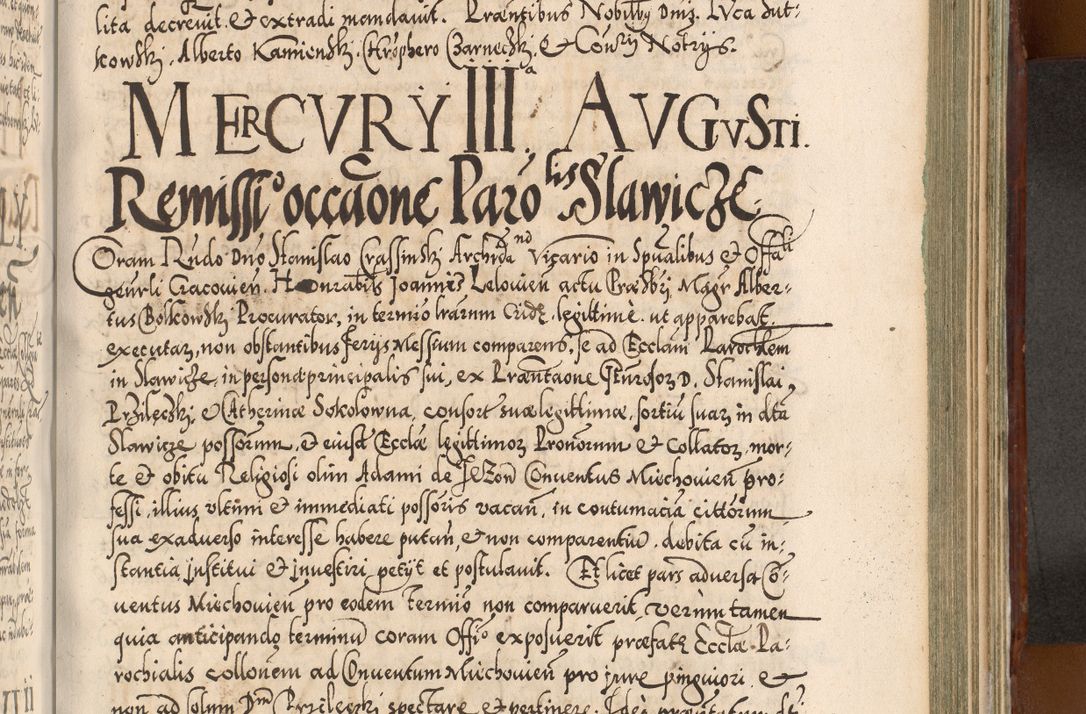 lita decreuit. & extradi mandauit. Præntibus Nobilibꝫ Dnis. Luca Sut-
kowski. Alberto Kamienski. Chrophero Czarnecki. & Con[...] Notrys.
MERCVRY IIIª. AVGVSTI.
Remissio occãone Parolis Slawicze.
Coram Rndo Dno Stanislao Crassinski Archidnd Vicario in Spũalibus & Offali
genrli Cracouien. Honrabilis Joannis Leloulien actu Præsbri Magr Alber-
tus Bolkowski Procurator, in termio lrarum Cridę. legittimè. ut apparebat,
executaꝝ, non obstantibus ferys Messium comparens, se ad Ecclam Parochlem
in Slawicze, in persona principalis sui, ex Præntaone Genrosoꝝ D. Stanislai,
Przilęczki. & Catherinæ Sokolowna, consort suæ legittimæ. sortiũ suaꝝ in dta
Slawicze possorum. & eiusd Ecclæ legittimoꝝ Pronorum & Collatoꝝ. mor-
te & obitu Religiosi olim Adami de Jeżow Conuentus Miechouien pro-
fessi. illius vltimi & immediati possoris vacan. in contumacia cittorum
sua exaduerso interesse habere putan, & non comparentiũ. debita cũ in-
stantia institui & inuestiri petyt et postulauit. Et licet pars aduersa Cõ-
uentus Miechouien pro eodem termio non comparuerit, verum tamen
quia anticipando terminũ coram Offio exposuerit præfatę Ecclæ Pa-
rochialis collonem ad Conuentum Miechouien pro jure pinguiori. &
non ad solum Dnm Przilęcki spectare & pertinere.